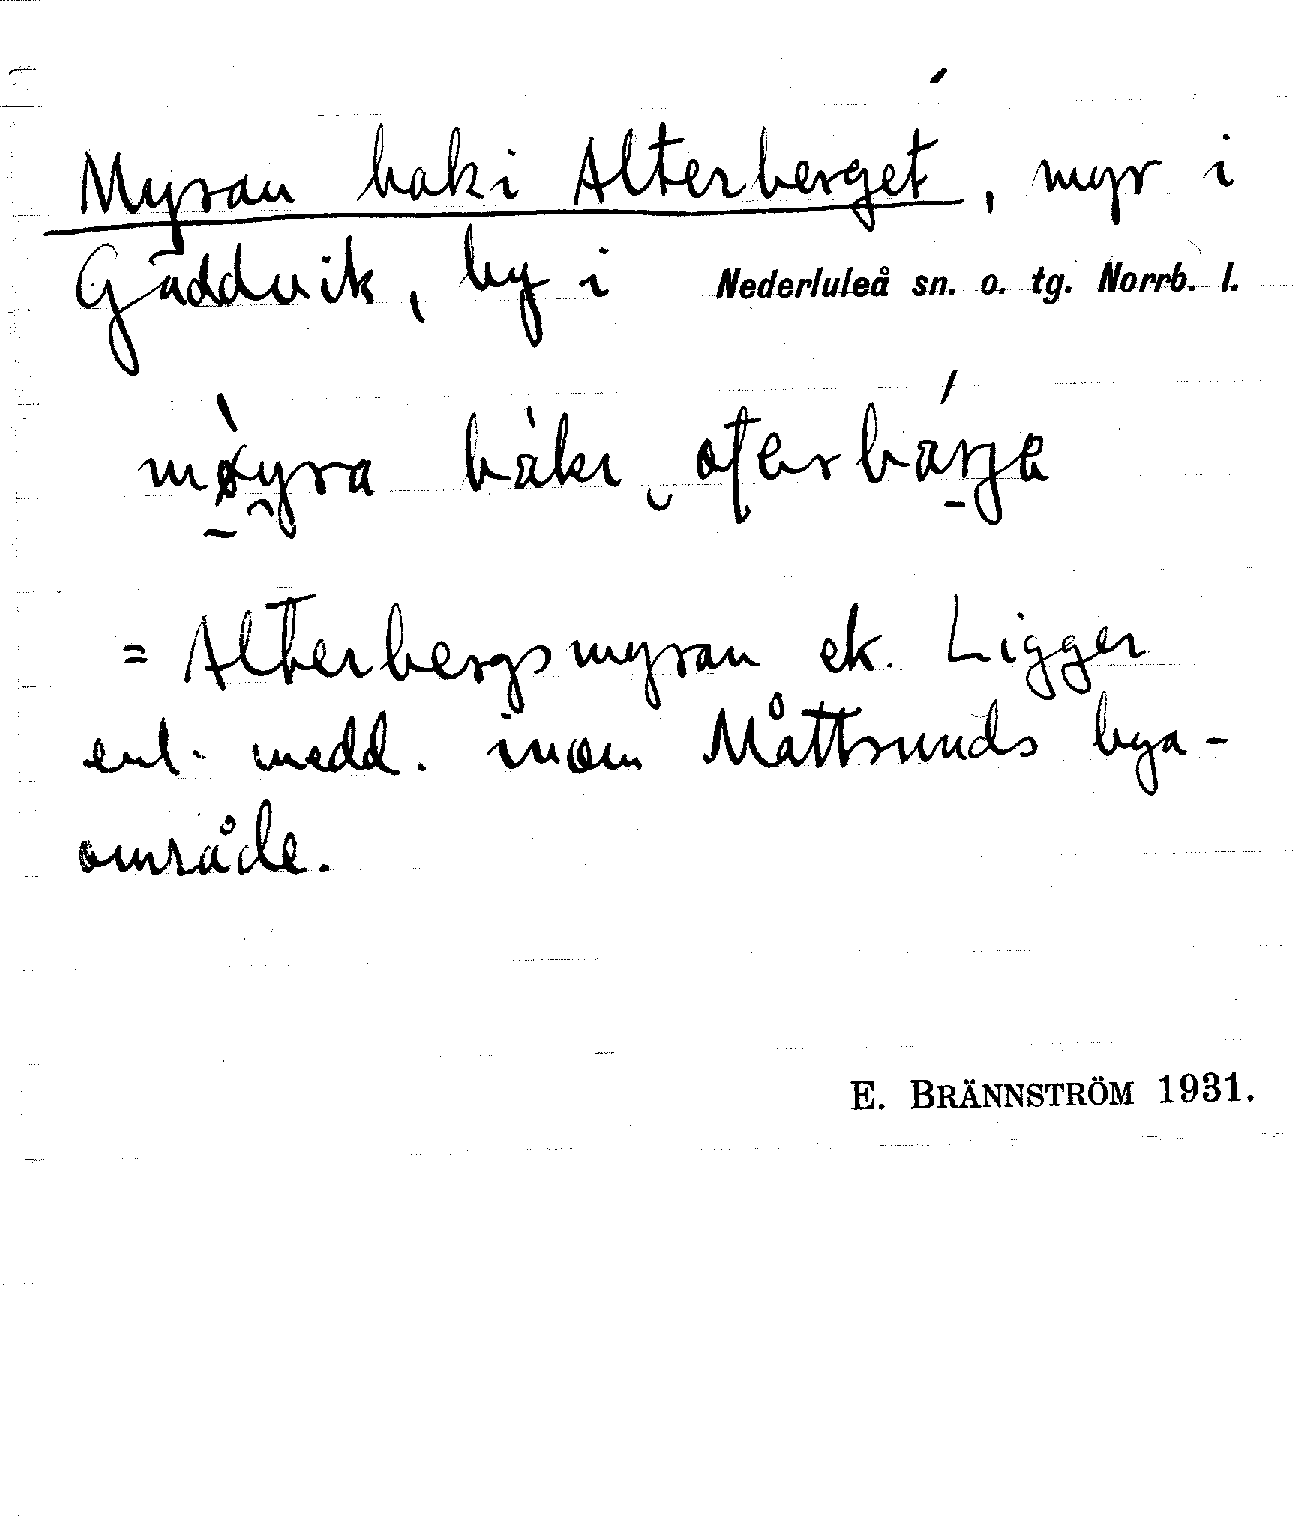 Myran baki Alterberget, myr i
Gäddvik, by i Nederluleå sn. o. tg. Norrb. l.
mø̀yra bàkı oterbárje
= Alterbergsmyran ek. Ligger
enl. medd. inom Måttsunds bya-
område.
E. BRÄNNSTRÖM 1931.